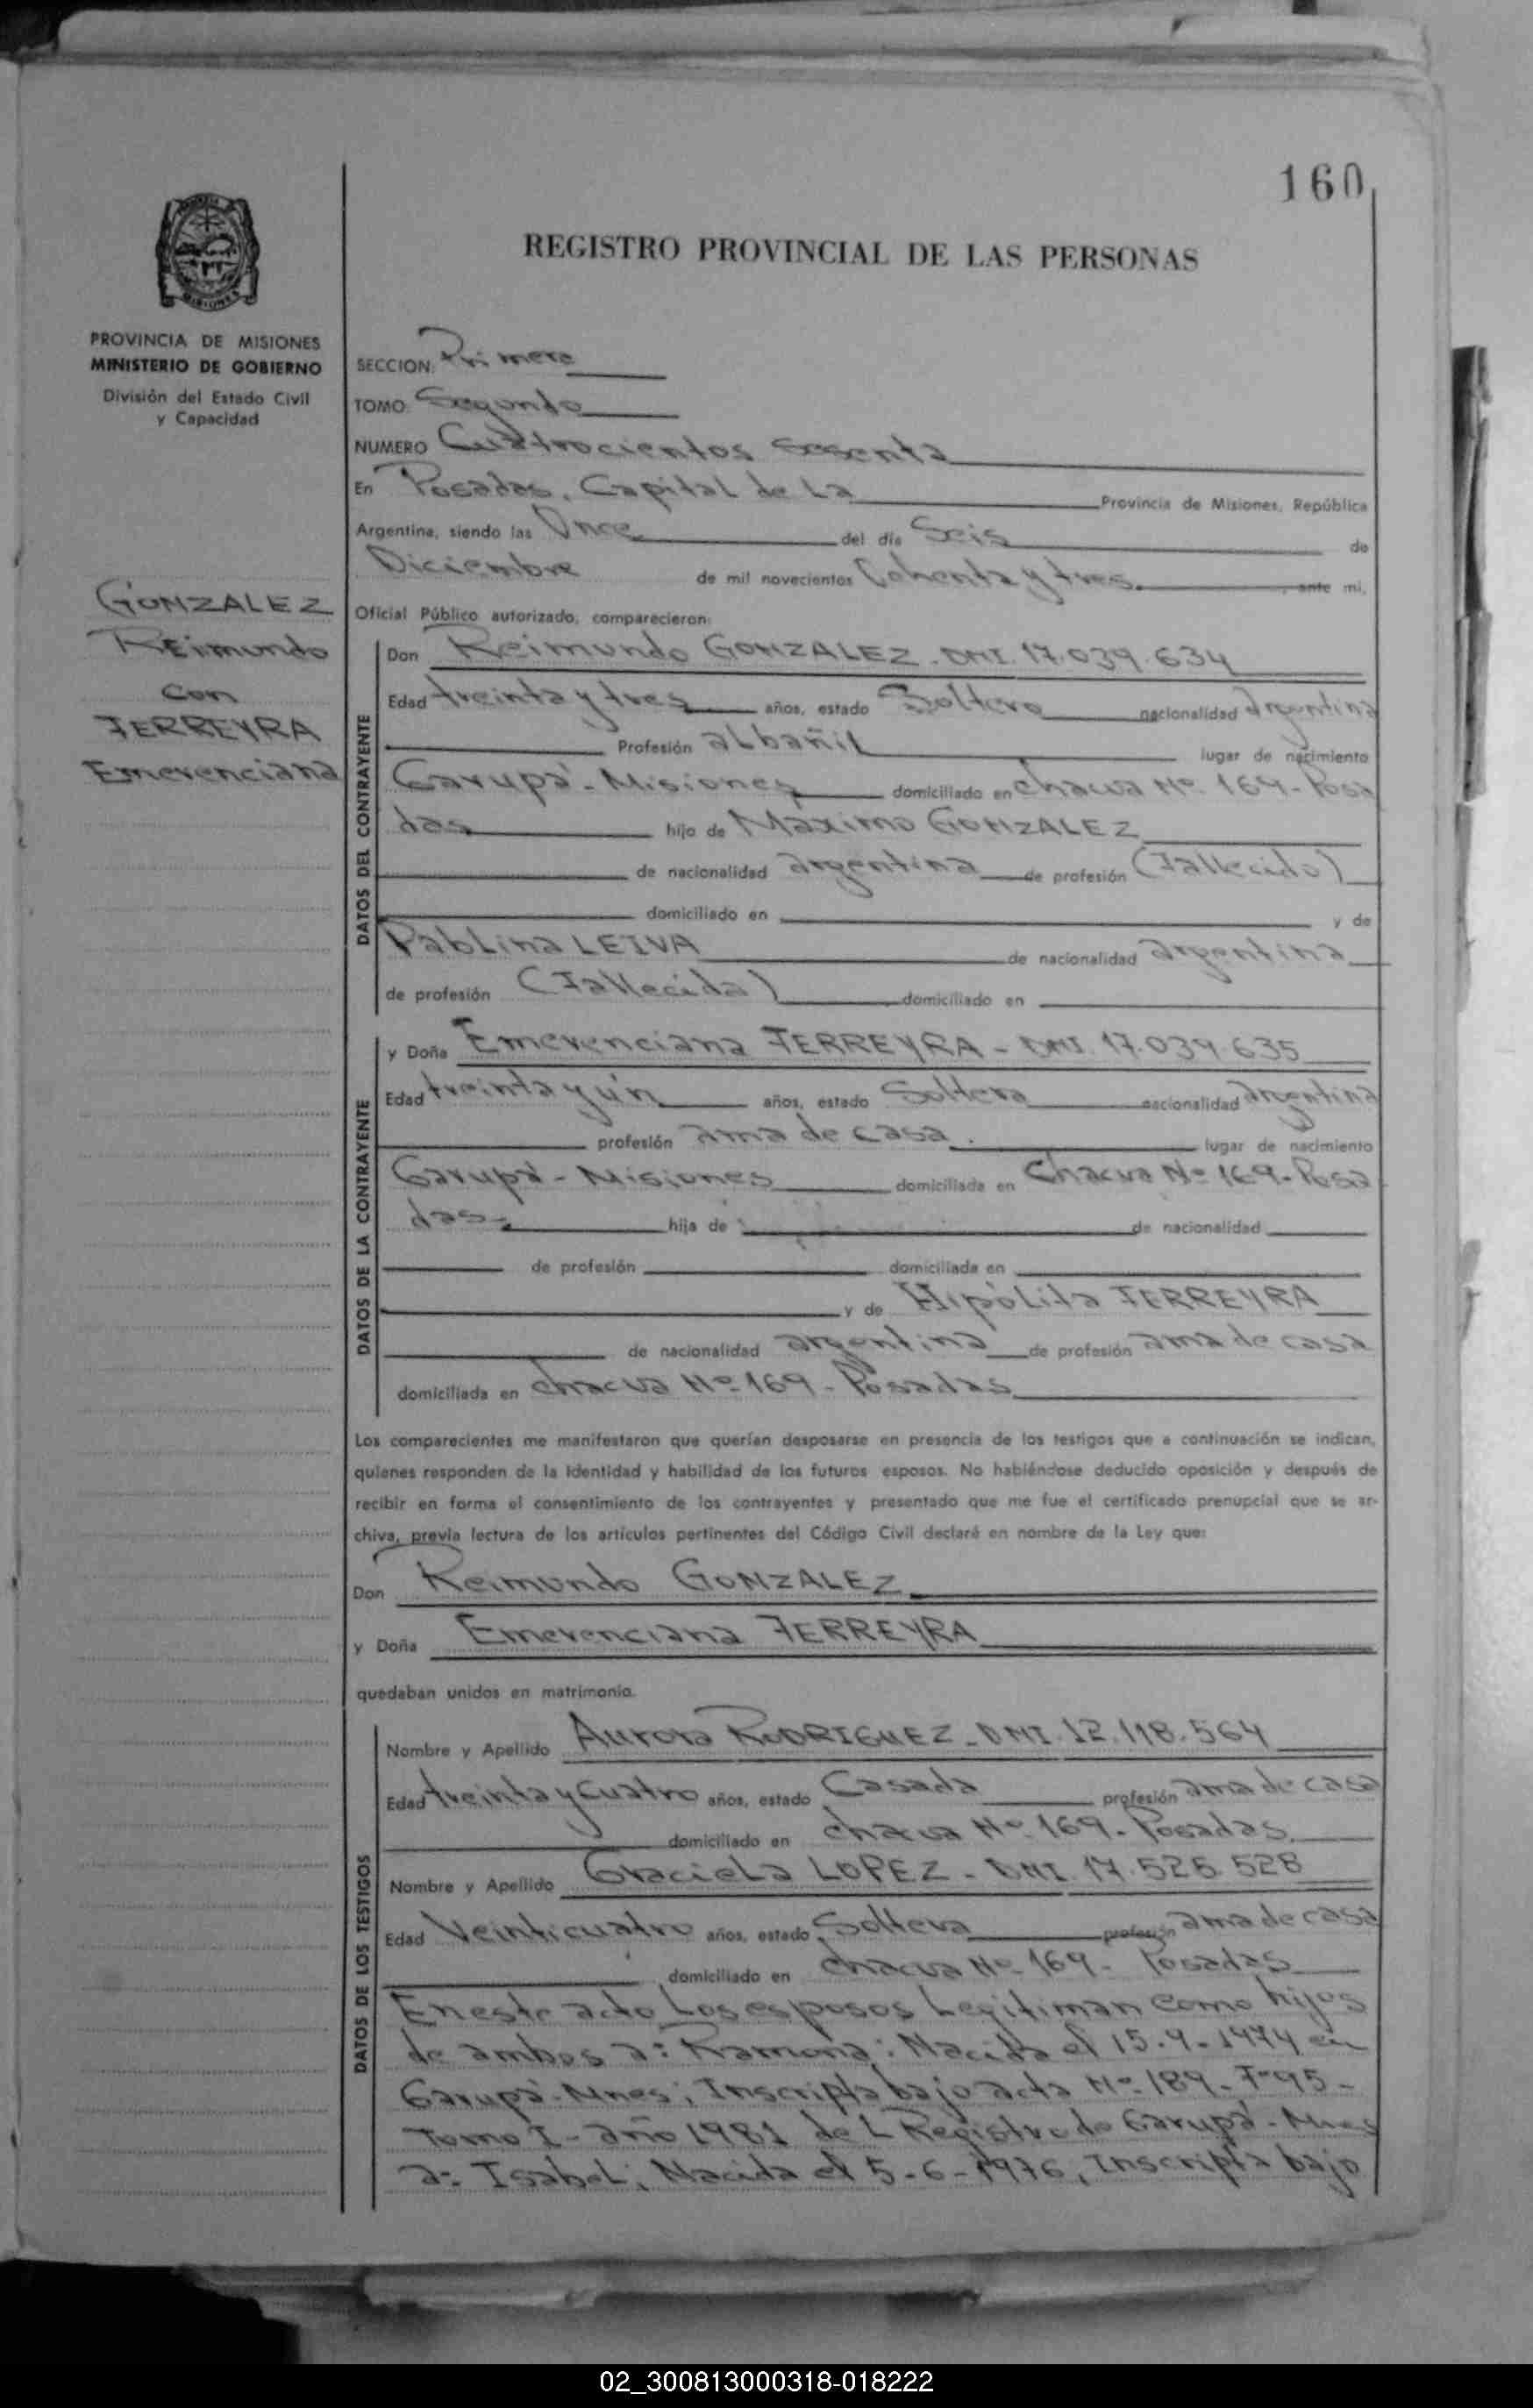 160
REGISTRO PROVINCIAL DE LAS PERSONAS
MISIONES
PROVINCIA DE MISIONES
MINISTERIO DE GOBIERNO
División del Estado Civil
y Capacidad
GONZALEZ
REimundo
con
FERREYRA
Emerenciana
SECCION: Primera
TOMO: Segundo
NUMERO Cuatrocientos Sesenta
En Posadas, Capital de La Provincia de Misiones, República
Argentina, siendo las Once del día Seis de
Diciembre de mil novecientos Ochenta y tres. ante mi,
Oficial Público autorizado, comparecieron:
DATOS DEL CONTRAYENTE
Don Reimundo GONZALEZ - DNI. 17.039.634
Edad treinta y tres años, estado Soltero nacionalidad argentina
Profesión albañil lugar de nacimiento
Garupá - Misiones domiciliado en chacra Nº 169 - Posa
das hijo de Maximo GONZALEZ
de nacionalidad argentina de profesión (Fallecido)
domiciliado en y de
Pablina LEIVA de nacionalidad argentina
de profesión (Fallecida) domiciliado en
DATOS DE LA CONTRAYENTE
y Doña Emerenciana FERREYRA - DNI. 17.039.635
Edad treinta y un años, estado Soltera nacionalidad argentina
profesión ama de casa. lugar de nacimiento
Garupá - Misiones domiciliada en Chacra Nº 169 - Posa
das - hija de de nacionalidad
de profesión domiciliada en
y de Hipólita FERREYRA
de nacionalidad argentina de profesión ama de casa
domiciliada en chacra Nº 169 - Posadas
Los comparecientes me manifestaron que querían desposarse en presencia de los testigos que a continuación se indican,
quienes responden de la identidad y habilidad de los futuros esposos. No habiéndose deducido oposición y después de
recibir en forma el consentimiento de los contrayentes y presentado que me fue el certificado prenupcial que se ar-
chiva, previa lectura de los artículos pertinentes del Código Civil declaré en nombre de la Ley que:
Don Reimundo GONZALEZ
y Doña Emerenciana FERREYRA
quedaban unidos en matrimonio.
DATOS DE LOS TESTIGOS
Nombre y Apellido Aurora RODRIGUEZ - DNI. 12.118.564
Edad treinta y cuatro años, estado Casada profesión ama de casa
domiciliado en chacra Nº 169 - Posadas
Nombre y Apellido Graciela LOPEZ - DNI. 17.525.528
Edad Veinticuatro años, estado Soltera profesión ama de casa
domiciliado en chacra Nº 169 - Posadas
En este acto Los esposos Legitiman como hijos
de ambos a: Ramona; Nacida el 15.9.1974 en
Garupá - Mnes; Inscripta bajo acta Nº 189 - Fº 95 -
Tomo I - año 1981 del Registro de Garupá - Mnes
a: Isabel; Nacida el 5-6-1976, Inscripta bajo
02_300813000318-018222